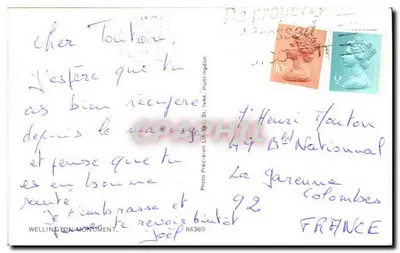 Be properly
cher Tonton,
j'espère que tu
as bien récupéré
depuis le mariage
et pense que tu
es en bonne
santé
je t'embrasse et
pense te revoir bientôt
Joël
WELLINGTON MONUMENT. R4380
Photo Precision Limited, St. Ives, Huntingdon
Mr Henri Mouton
49 Bd National
La Garenne
Colombes
92
FRANCE